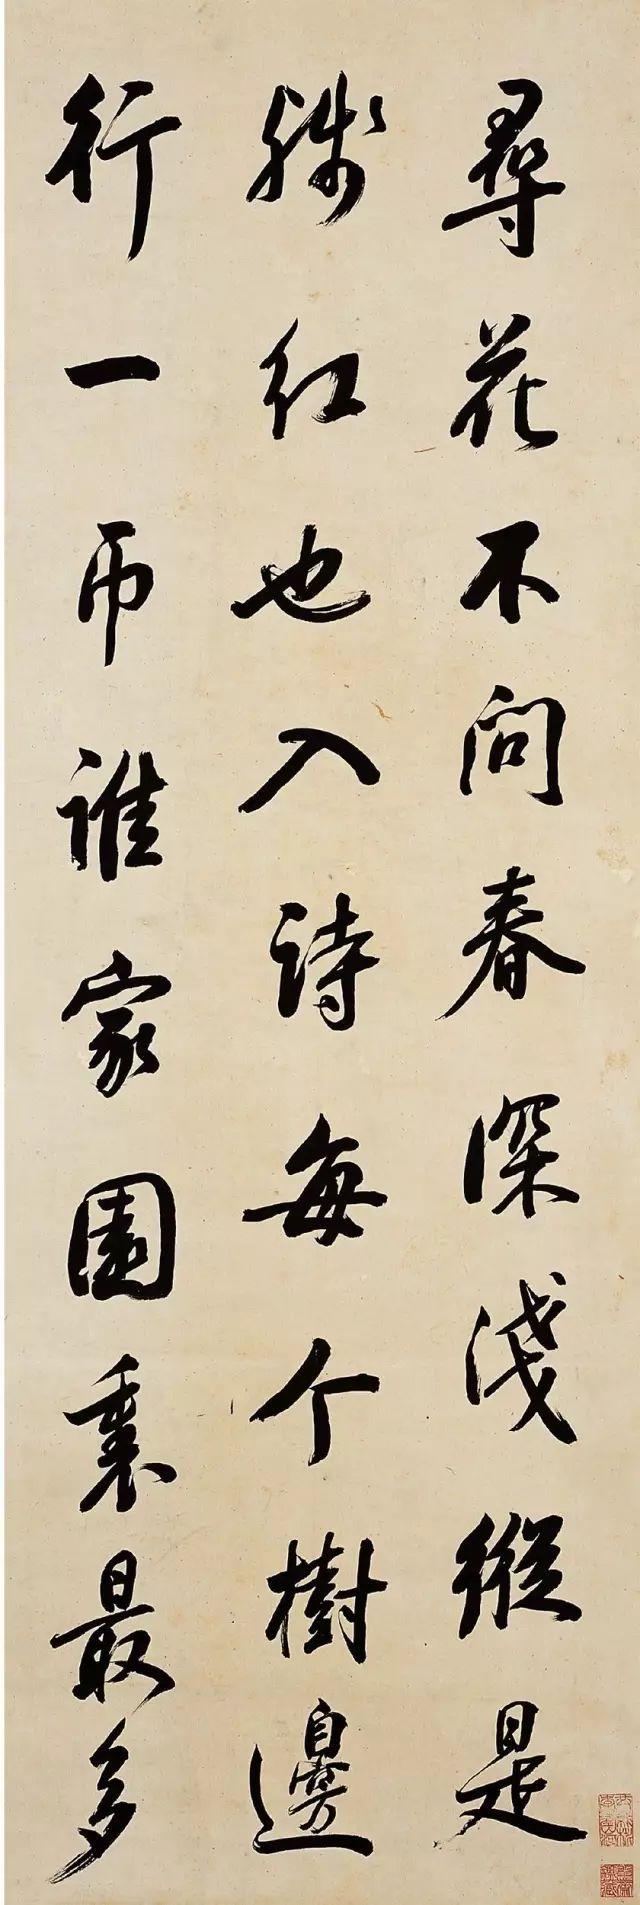 尋花不問春深淺縱是
殘紅也入詩每个樹邊
行一帀誰家園裏最多